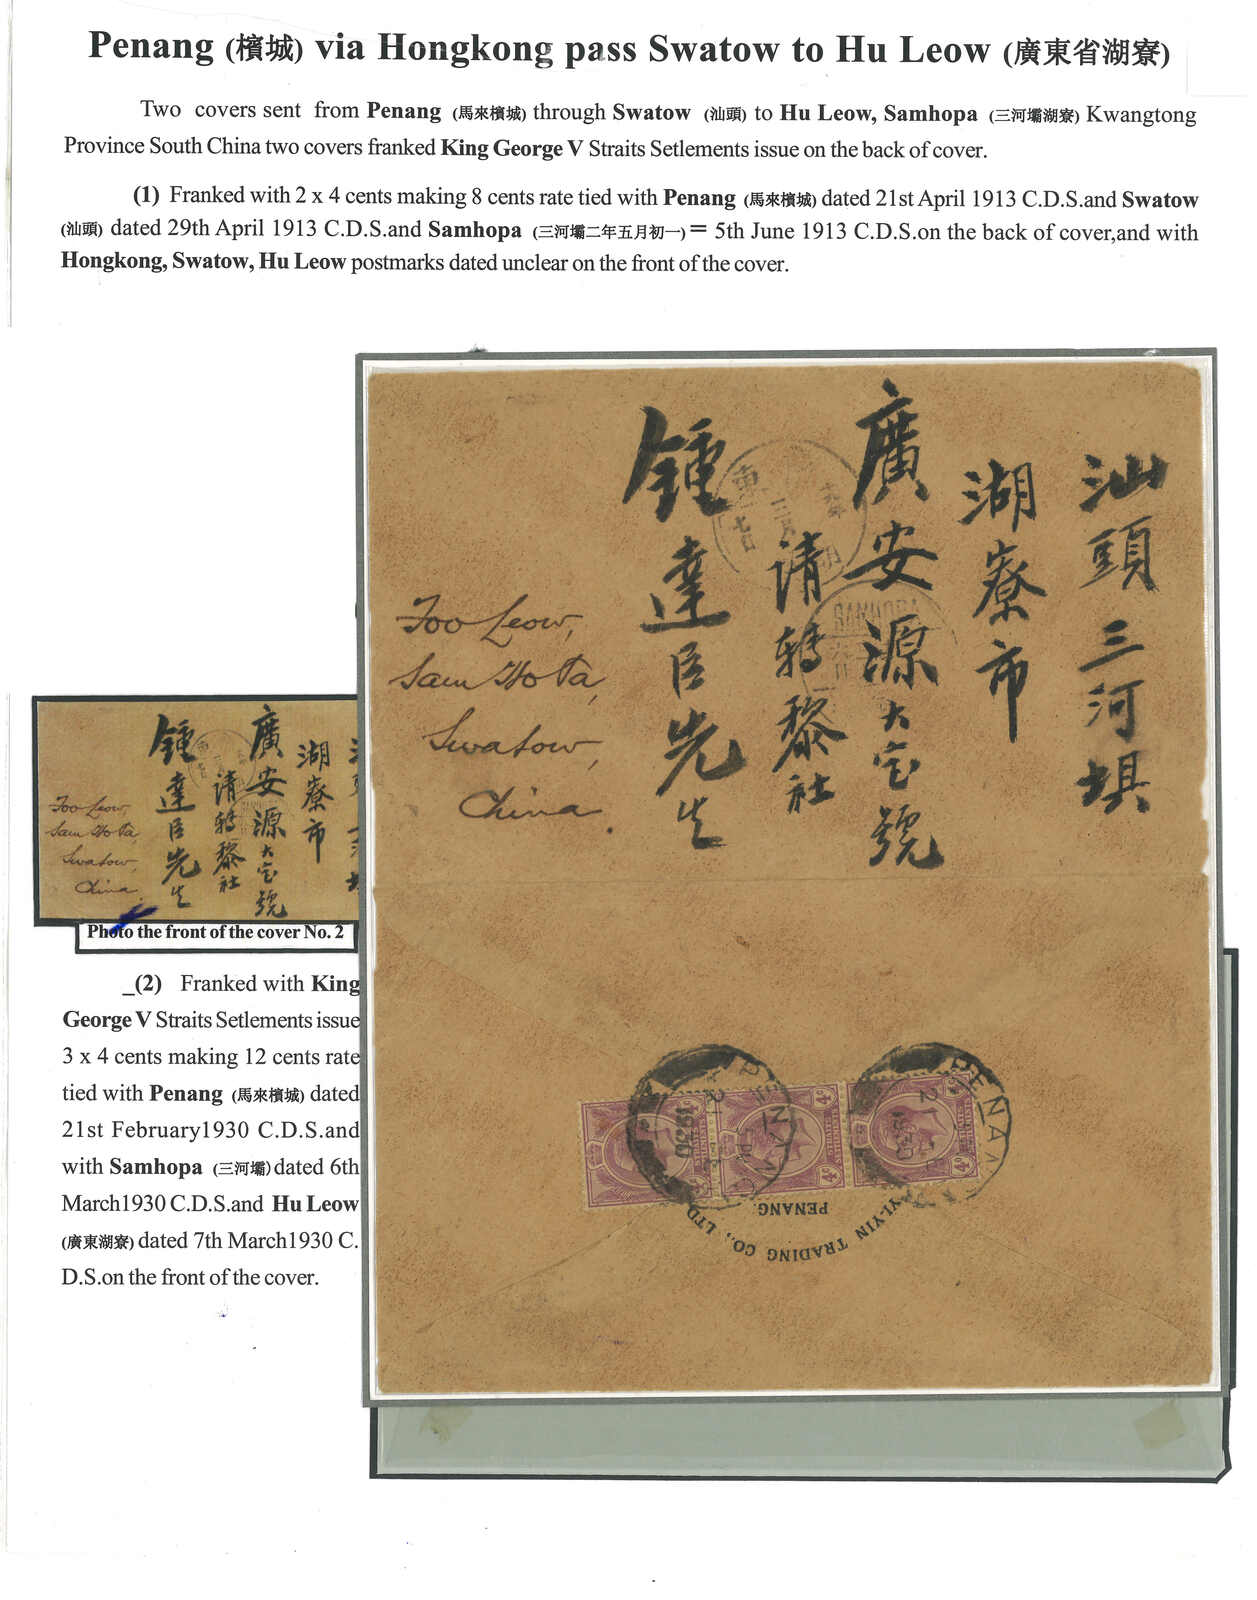 Penang (檳城) via Hongkong pass Swatow to Hu Leow (廣東省湖寮)
Two covers sent from Penang (馬來檳城) through Swatow (汕頭) to Hu Leow, Samhopa (三河壩湖寮) Kwangtong
Province South China two covers franked King George V Straits Setlements issue on the back of cover.
(1) Franked with 2 x 4 cents making 8 cents rate tied with Penang (馬來檳城) dated 21st April 1913 C.D.S.and Swatow
(汕頭) dated 29th April 1913 C.D.S.and Samhopa (三河壩二年五月初一) = 5th June 1913 C.D.S.on the back of cover,and with
Hongkong, Swatow, Hu Leow postmarks dated unclear on the front of the cover.
汕頭三河垻
湖寮市
廣安源大宝號
請轉黎社
鍾達臣先生
Foo Leow,
Sam Ho Pa,
Swatow,
China.
SAMHOPA
七日
三月
湖寮市
廣安源大宝號
請轉黎社
鍾達臣先生
Foo Leow,
Sam Ho Pa,
Swatow,
China.
Photo the front of the cover No. 2
_(2) Franked with King
George V Straits Setlements issue
3 x 4 cents making 12 cents rate
tied with Penang (馬來檳城) dated
21st February1930 C.D.S.and
with Samhopa (三河壩) dated 6th
March1930 C.D.S.and Hu Leow
(廣東湖寮) dated 7th March1930 C.
D.S.on the front of the cover.
PENANG
1930
PENANG
21
1930
4c
4c
4c
YI-YIN TRADING CO., LTD.
PENANG.